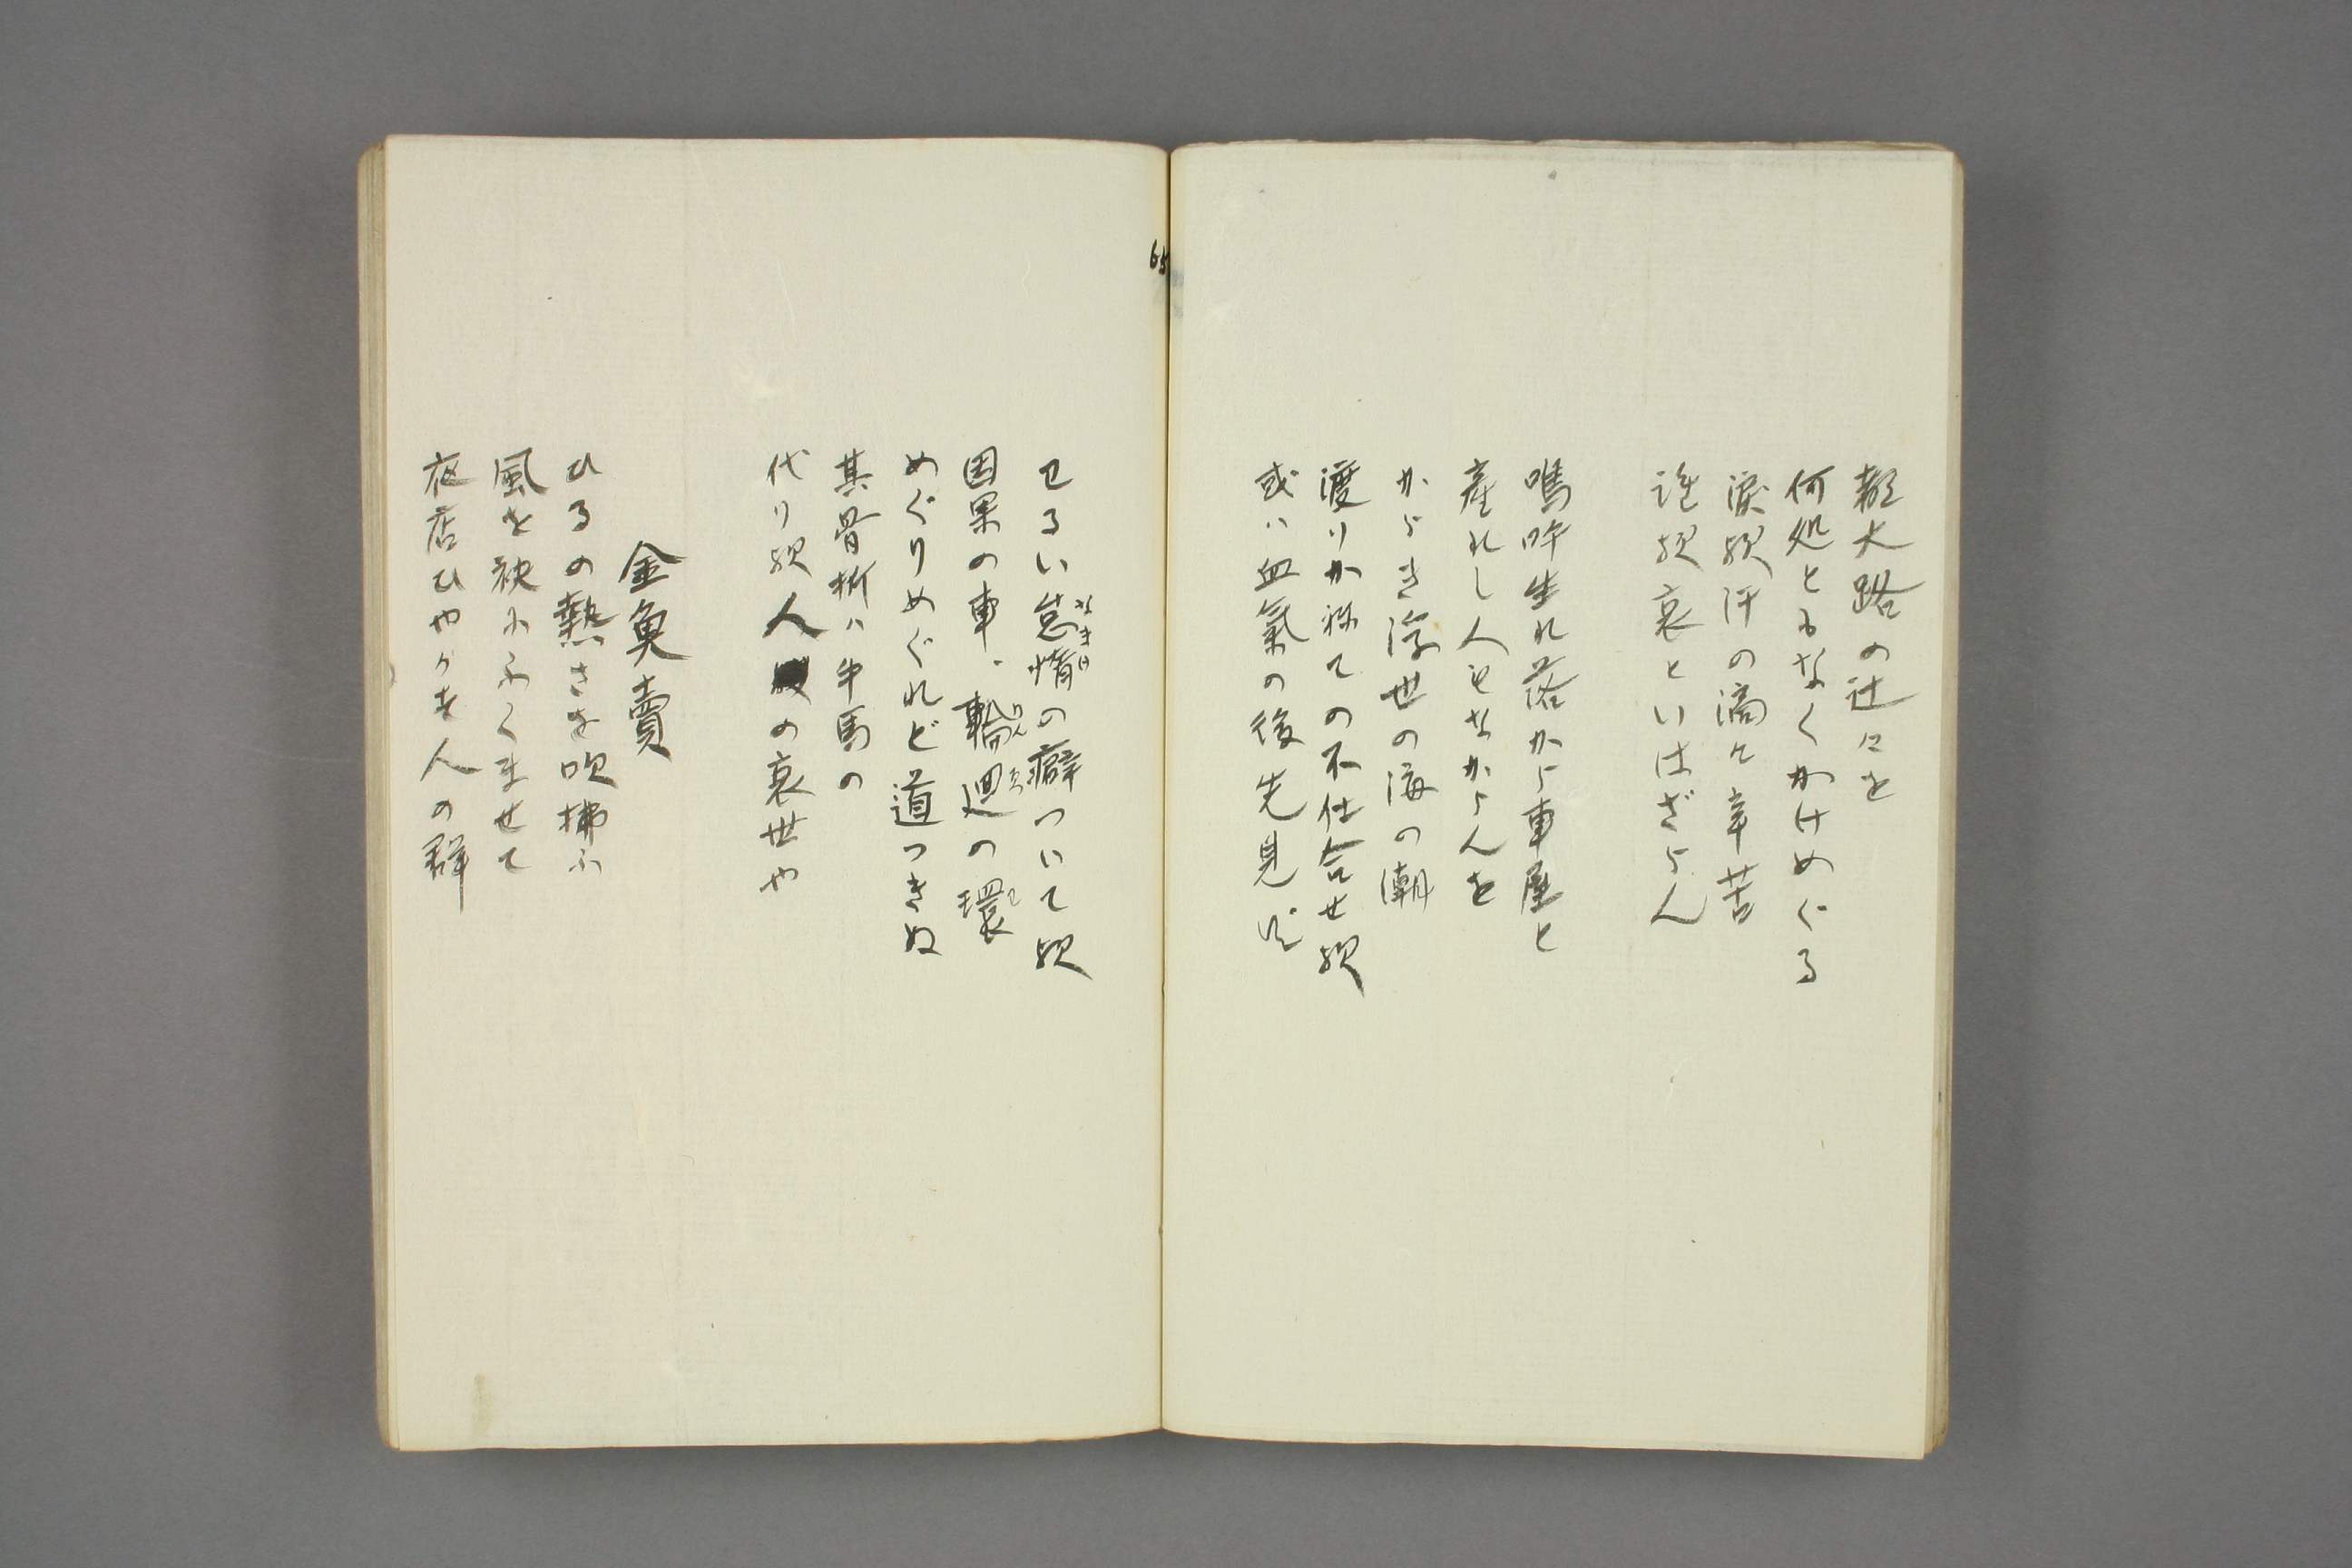 都大路の辻々を
何処ともなくかけめぐる
涙歟汗の滴々辛苦
誰歟哀といはざらん
嗚呼生れ落から車屋と
産れし人もなからんを
からき浮世の海の潮
渡りかねての不仕合せ歟
或ハ血氣の後先見ず
65
わるい怠惰の癖ついて歟
なまけ
因果の車、輪廻の環
りん
わ
めぐりめぐれど道つきぬ
其骨折ハ牛馬の
代り歟人の哀世や
金魚賣
ひるの熱さを吹拂ふ
風を袂にふくませて
夜店ひやかす人の群